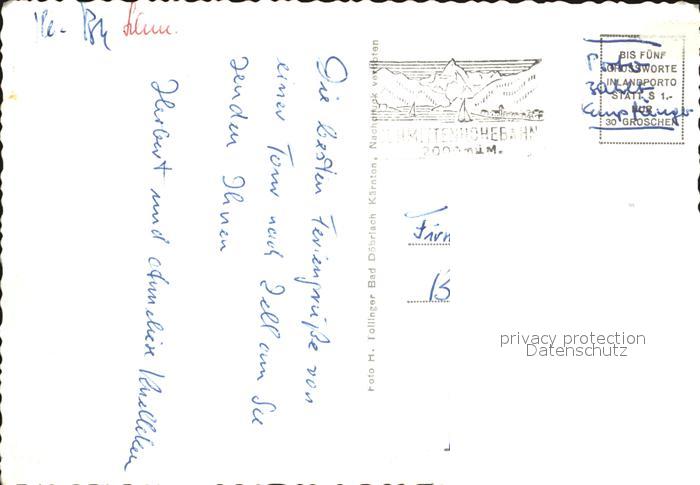 Die besten Feriengrüße von
einer Tour nach Zell am See
senden Ihnen
Herbert und
Foto H. Tollinger Bad Döbriach Kärnten, Nachdruck verboten
SCHMITTENHÖHEBAHN
2000 m ü.M.
BIS FÜNF
GRUSSWORTE
INLANDPORTO
STATT S 1.-
NUR
30 GROSCHEN
Porto
zahlt
Empfänger
privacy protection
Datenschutz